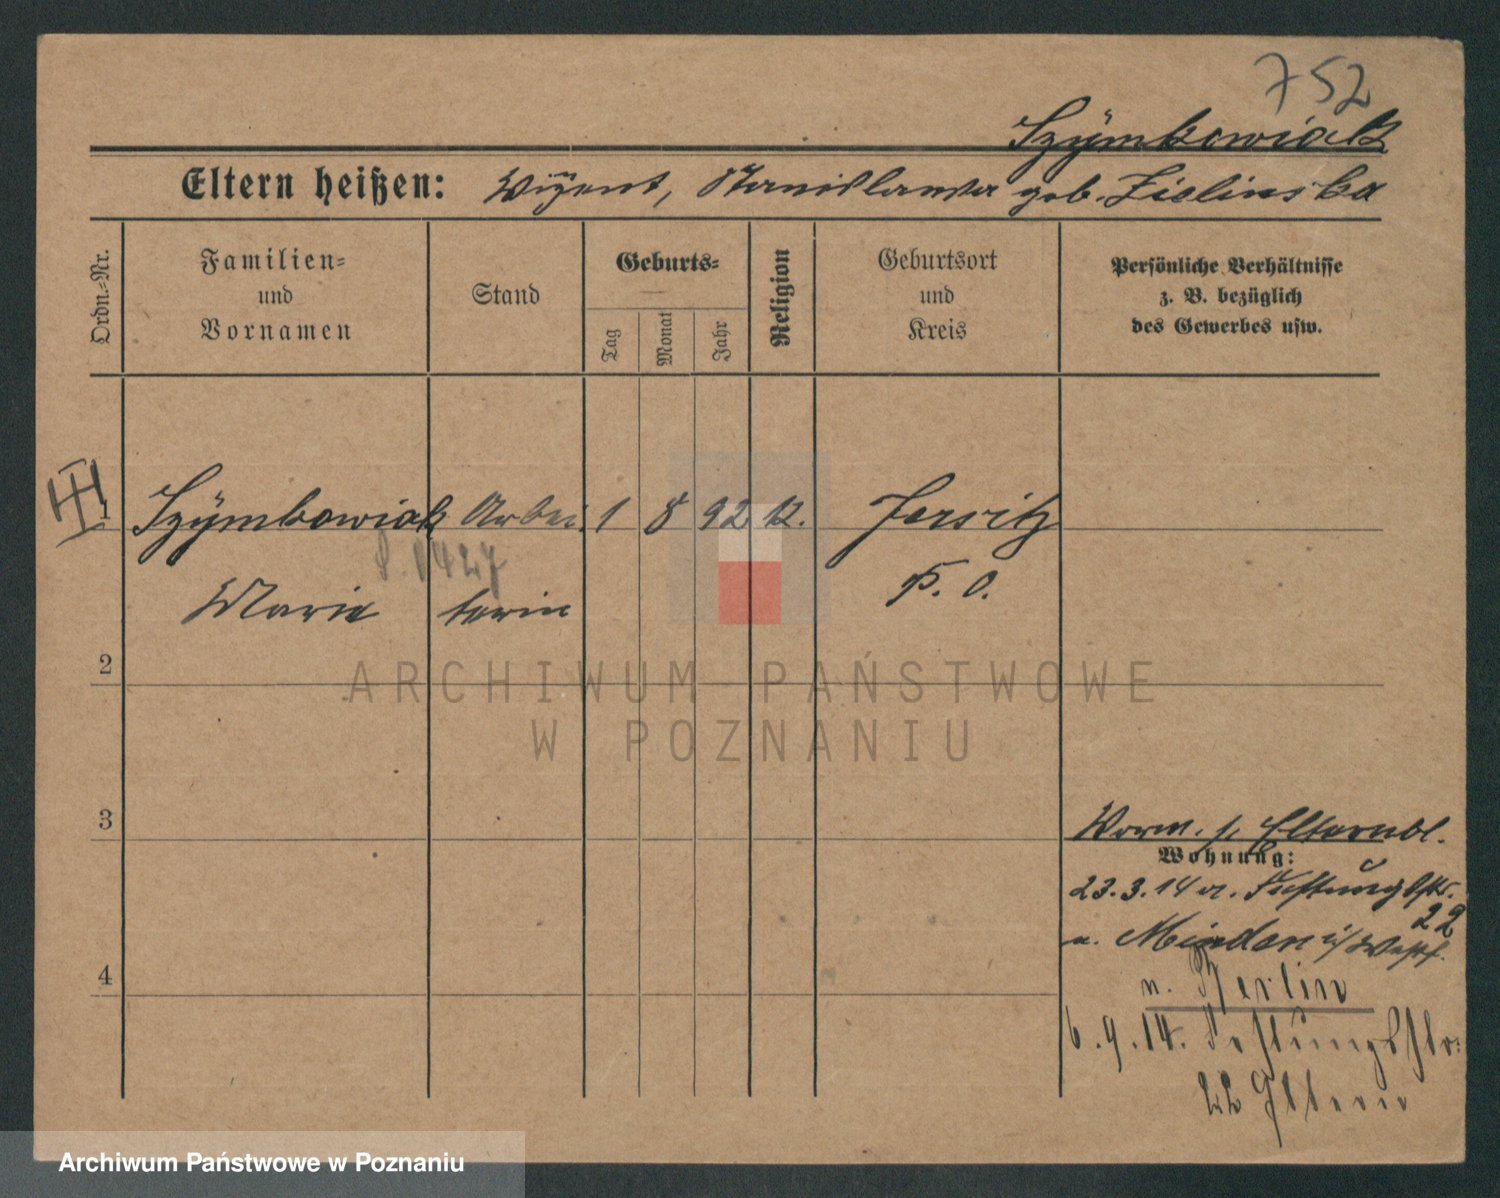 752
Szymkowiak
Eltern heißen: Wizent, Stanislawa geb. Zielinska
Ordn.-Nr.
Familien-
und
Vornamen
Stand
Geburts-
Tag
Monat
Jahr
Religion
Geburtsort
und
Kreis
Persönliche Verhältnisse
z. B. bezüglich
des Gewerbes usw.
III
1 Szymkowiak Arbei 1 8 92 k. Jersitz
Marie terin P. O.
2
ARCHIWUM PAŃSTWOWE
W POZNANIU
3
Vorm. s. Elternbl.
Wohnung:
23.3.14 a. Festungsstr.
22
n. Minden i/Westf.
4
n. Berlin
6.9.14. Festungsstr.
22 Eltern
Archiwum Państwowe w Poznaniu